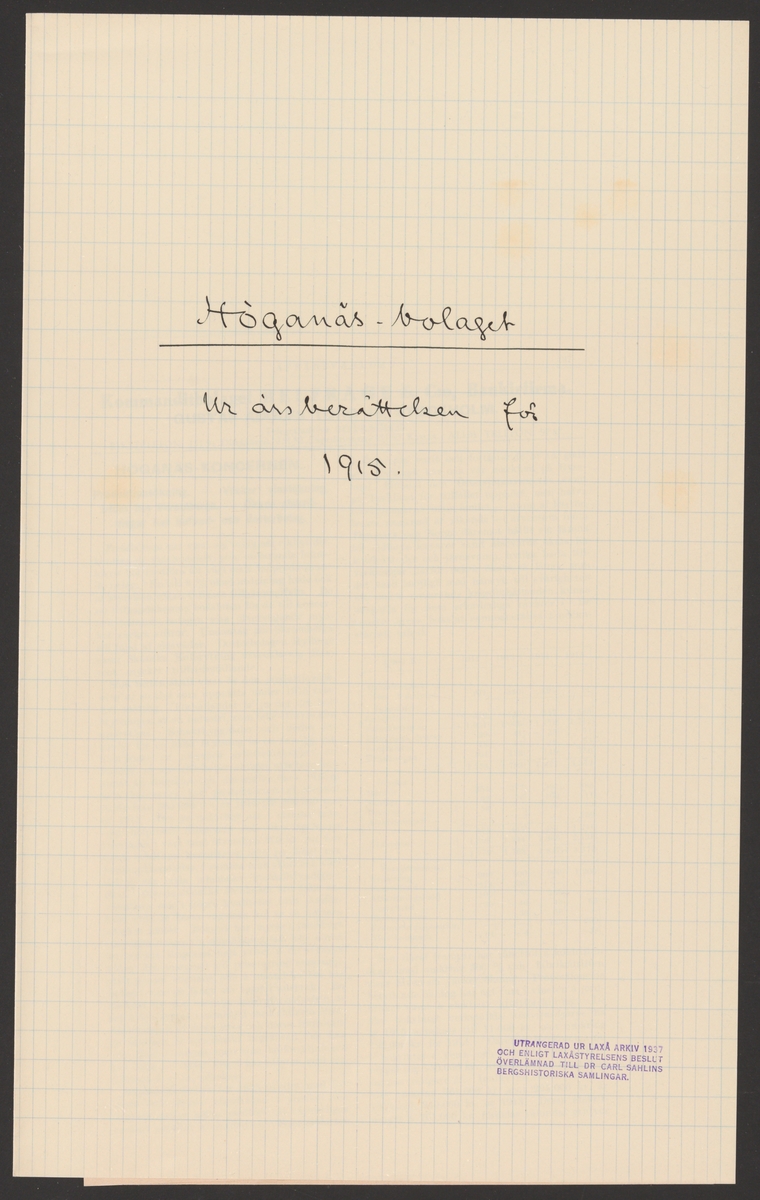 Höganäs-bolaget
Ur årsberättelsen för
1915.
UTRANGERAD UR LAXÅ ARKIV 1937
OCH ENLIGT LAXÅSTYRELSENS BESLUT
ÖVERLÄMNAD TILL DR CARL SAHLINS
BERGSHISTORISKA SAMLINGAR.